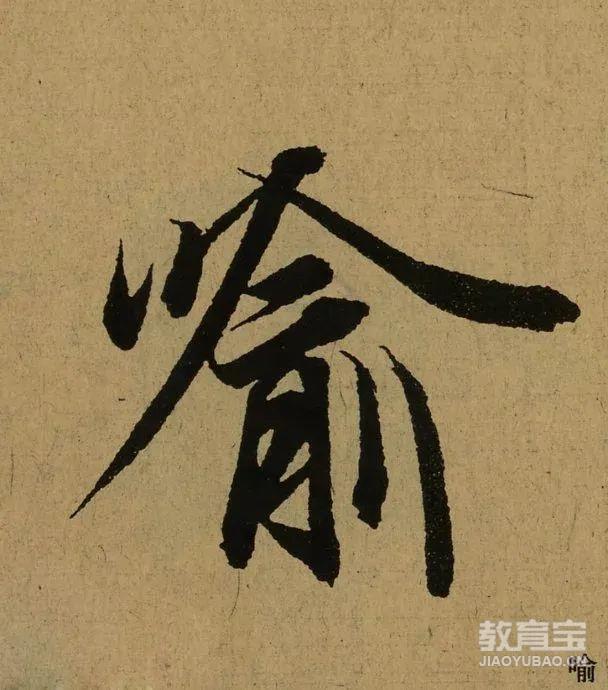 喻
教育宝
JIAOYUBAO.CN
喻